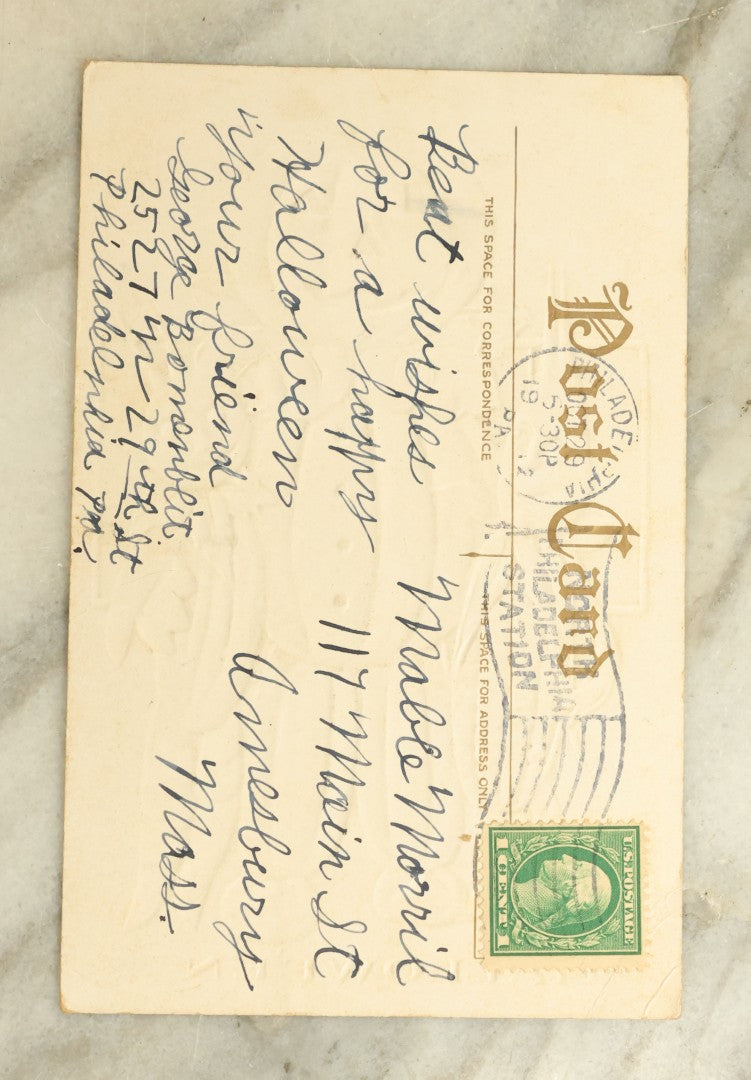 Post Card
THIS SPACE FOR CORRESPONDENCE
THIS SPACE FOR ADDRESS ONLY
PHILADELPHIA
OCT 29
5-30P
19 12
PA.
NORTH
PHILADELPHIA
STATION
U.S. POSTAGE
1 CENT 1
Best wishes
for a happy
Halloween
"Your friend
George Bomenblit
2527 N 29th St
Philadelphia Pa.
Mable Morril
117 Main St
Amesbury
Mass.